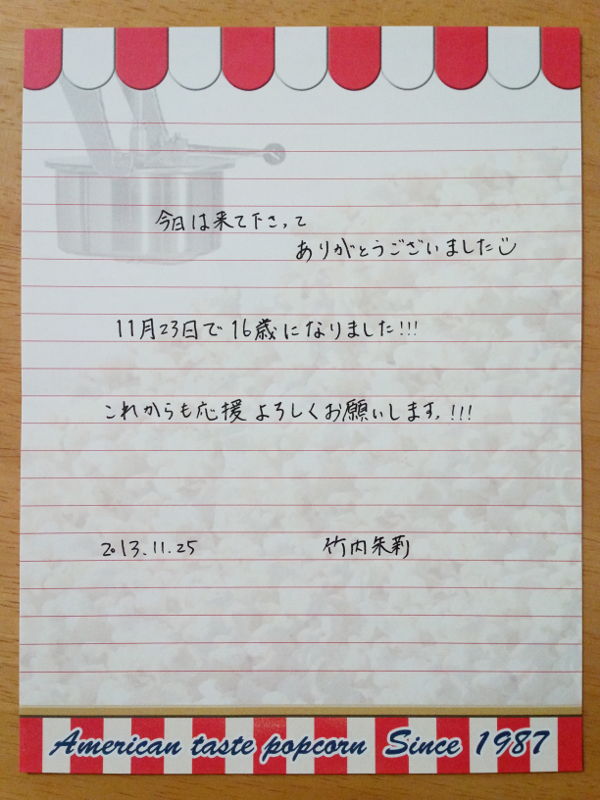 今日は来て下さって
ありがとうございました
11月23日で16歳になりました!!!
これからも応援よろしくお願いします。!!!
2013.11.25 竹内朱莉
American taste popcorn Since 1987